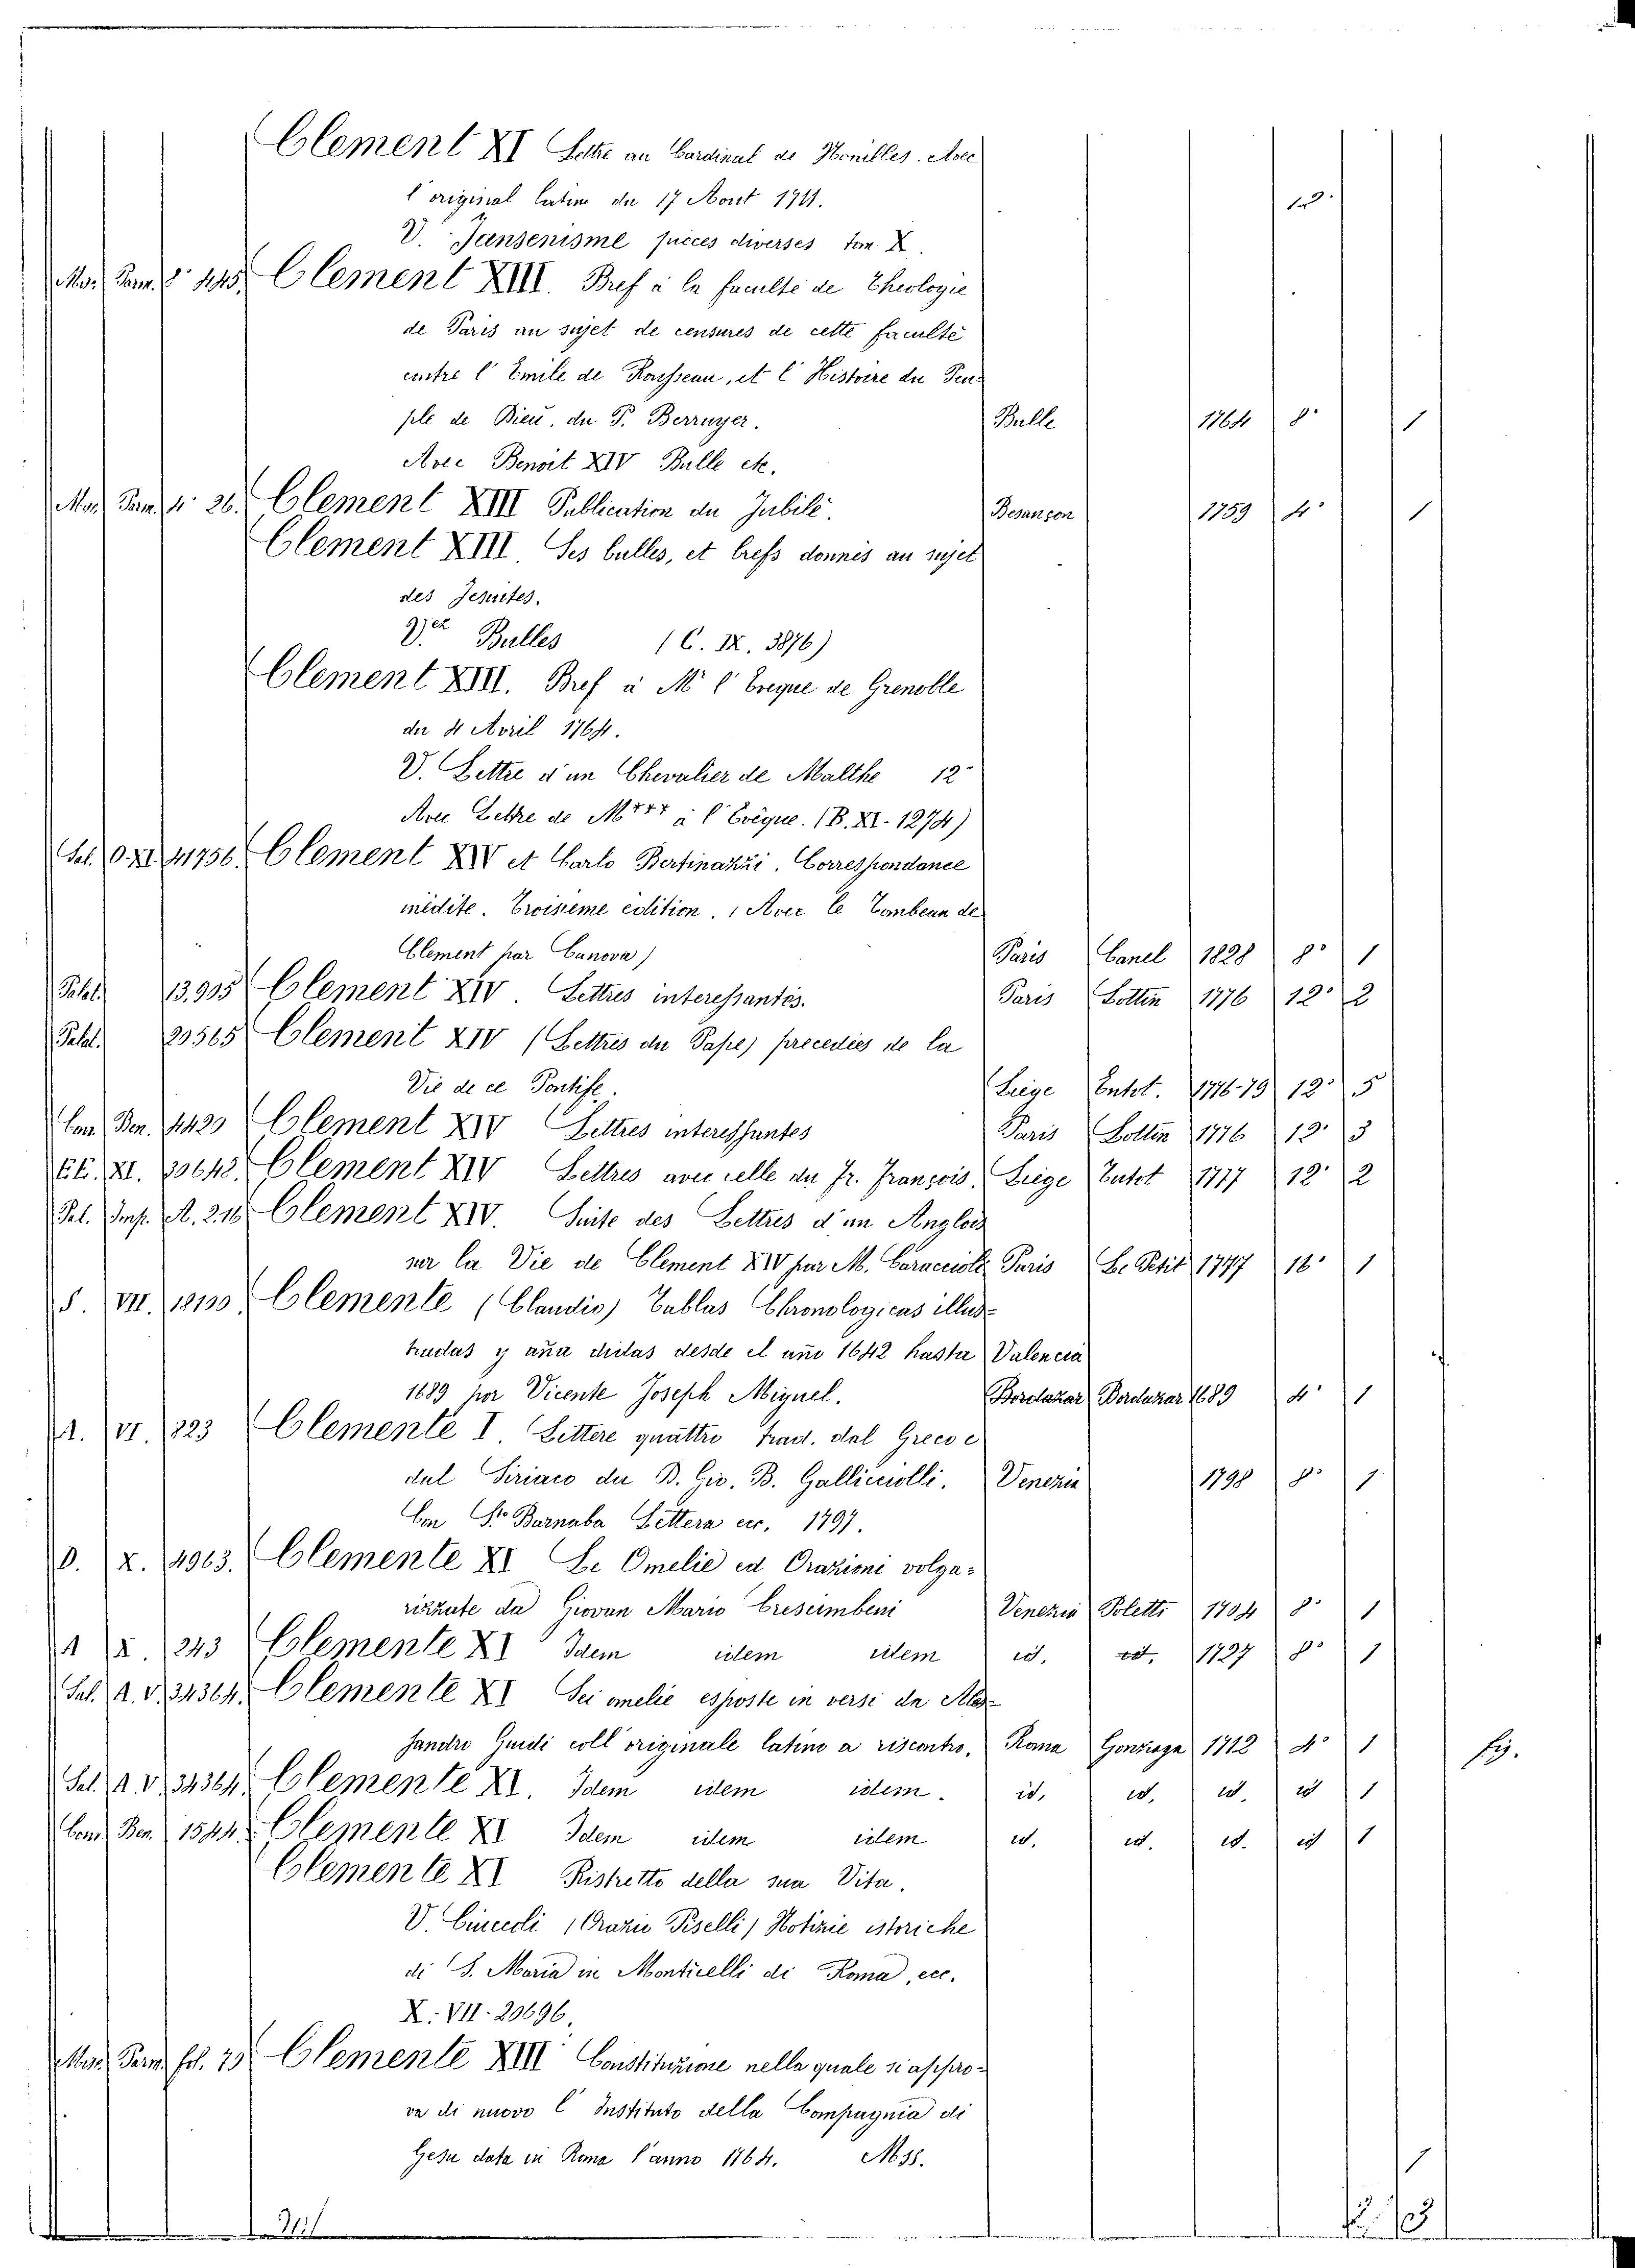 Clement XI Lettre au Cardinal de Noailles. Avec
l'original latin du 17 Aout 1711. 12°
V. Jansenisme pièces diverses tom. X.
Mos. Parm. 8° 445. Clement XIII. Bref à la faculté de Theologie
de Paris au sujet de censures de cette faculté
contre l'Emile de Rousseau, et l'Histoire du Peu-
ple de Dieu, du P. Berruyer. Bulle 1764 8° 1
Avec Benoit XIV Bulle etc.
Mos. Parm. 4° 26. Clement XIII Publication du Jubilé. Besançon 1759 4° 1
Clement XIII. Ses bulles, et brefs donnés au sujet
des Jesuites.
V.ez Bulles (C. IX. 3876)
Clement XIII. Bref à Mr l'Eveque de Grenoble
du 4 Avril 1764.
V. Lettre d'un Chevalier de Malthe 12°
Avec Lettre de M*** à l'Evêque. (B. XI-1274)
Sal. O. XI. 41756. Clement XIV et Carlo Bertinazzi. Correspondance
inédite. Troisieme edition. (Avec le Tombeau de
Clement par Canova) Paris Canel 1828 8° 1
Palat. 13.995 Clement XIV. Lettres interessantes. Paris Lottin 1776 12° 2
Palat. 20565 Clement XIV (Lettres du Pape) precedées de la
Vie de ce Pontife. Liege Tutot. 1776-79 12° 5
Con. Ben. 4429 Clement XIV Lettres interessantes Paris Lottin 1776 12° 3
EE. XI. 30642. Clement XIV Lettres avec celle du Fr. François. Liege Tutot 1777 12° 2
Pal. Imp. A. 216 Clement XIV. Suite des Lettres d'un Anglois
sur la Vie de Clement XIV par M. Caraccioli Paris Le Petit 1777 18° 1
S. VII. 18130. Clemente (Claudio) Tablas Chronologicas illus-
tradas y aña didas desde el año 1642 hasta Valencia
1689 por Vicente Joseph Miguel. Bordazar Bordazar 1689 4° 1
A. VI. 823 Clemente I. Lettere quattro trad. dal Greco e
dal Siriaco da B. Gio. B. Gallicciolli. Venezia 1798 8° 1
Con Sn Barnaba Lettera ecc. 1797.
D. X. 4963. Clemente XI Le Omelie ed Orazioni volga=
rizzate da Giovan Mario Crescimbeni Venezia Poletti 1704 8° 1
A X. 243 Clemente XI Idem idem idem id. id. 1727 8° 1
Sal. A. V. 34364. Clemente XI Sei omelie esposte in versi da Ales-
sandro Guidi coll'originale latino a riscontro. Roma Gonzaga 1712 4° 1 fig.
Sal. A. V. 34364. Clemente XI. Idem idem idem. id. id. id. id 1
Con. Ben. 1544. Clemente XI Idem idem idem id. id. id. id 1
Clemente XI Ristretto della sua Vita.
V. Cinccoli (Orazio Piselli) Notizie istoriche
di S. Maria in Monticelli di Roma, ecc.
X. VII-20696.
Mos. Parm. fol. 79 Clemente XIII Constituzione nella quale si appro-
va di nuovo l'Instituto della Compagnia di
Gesu data in Roma l'anno 1764. Mss. 1